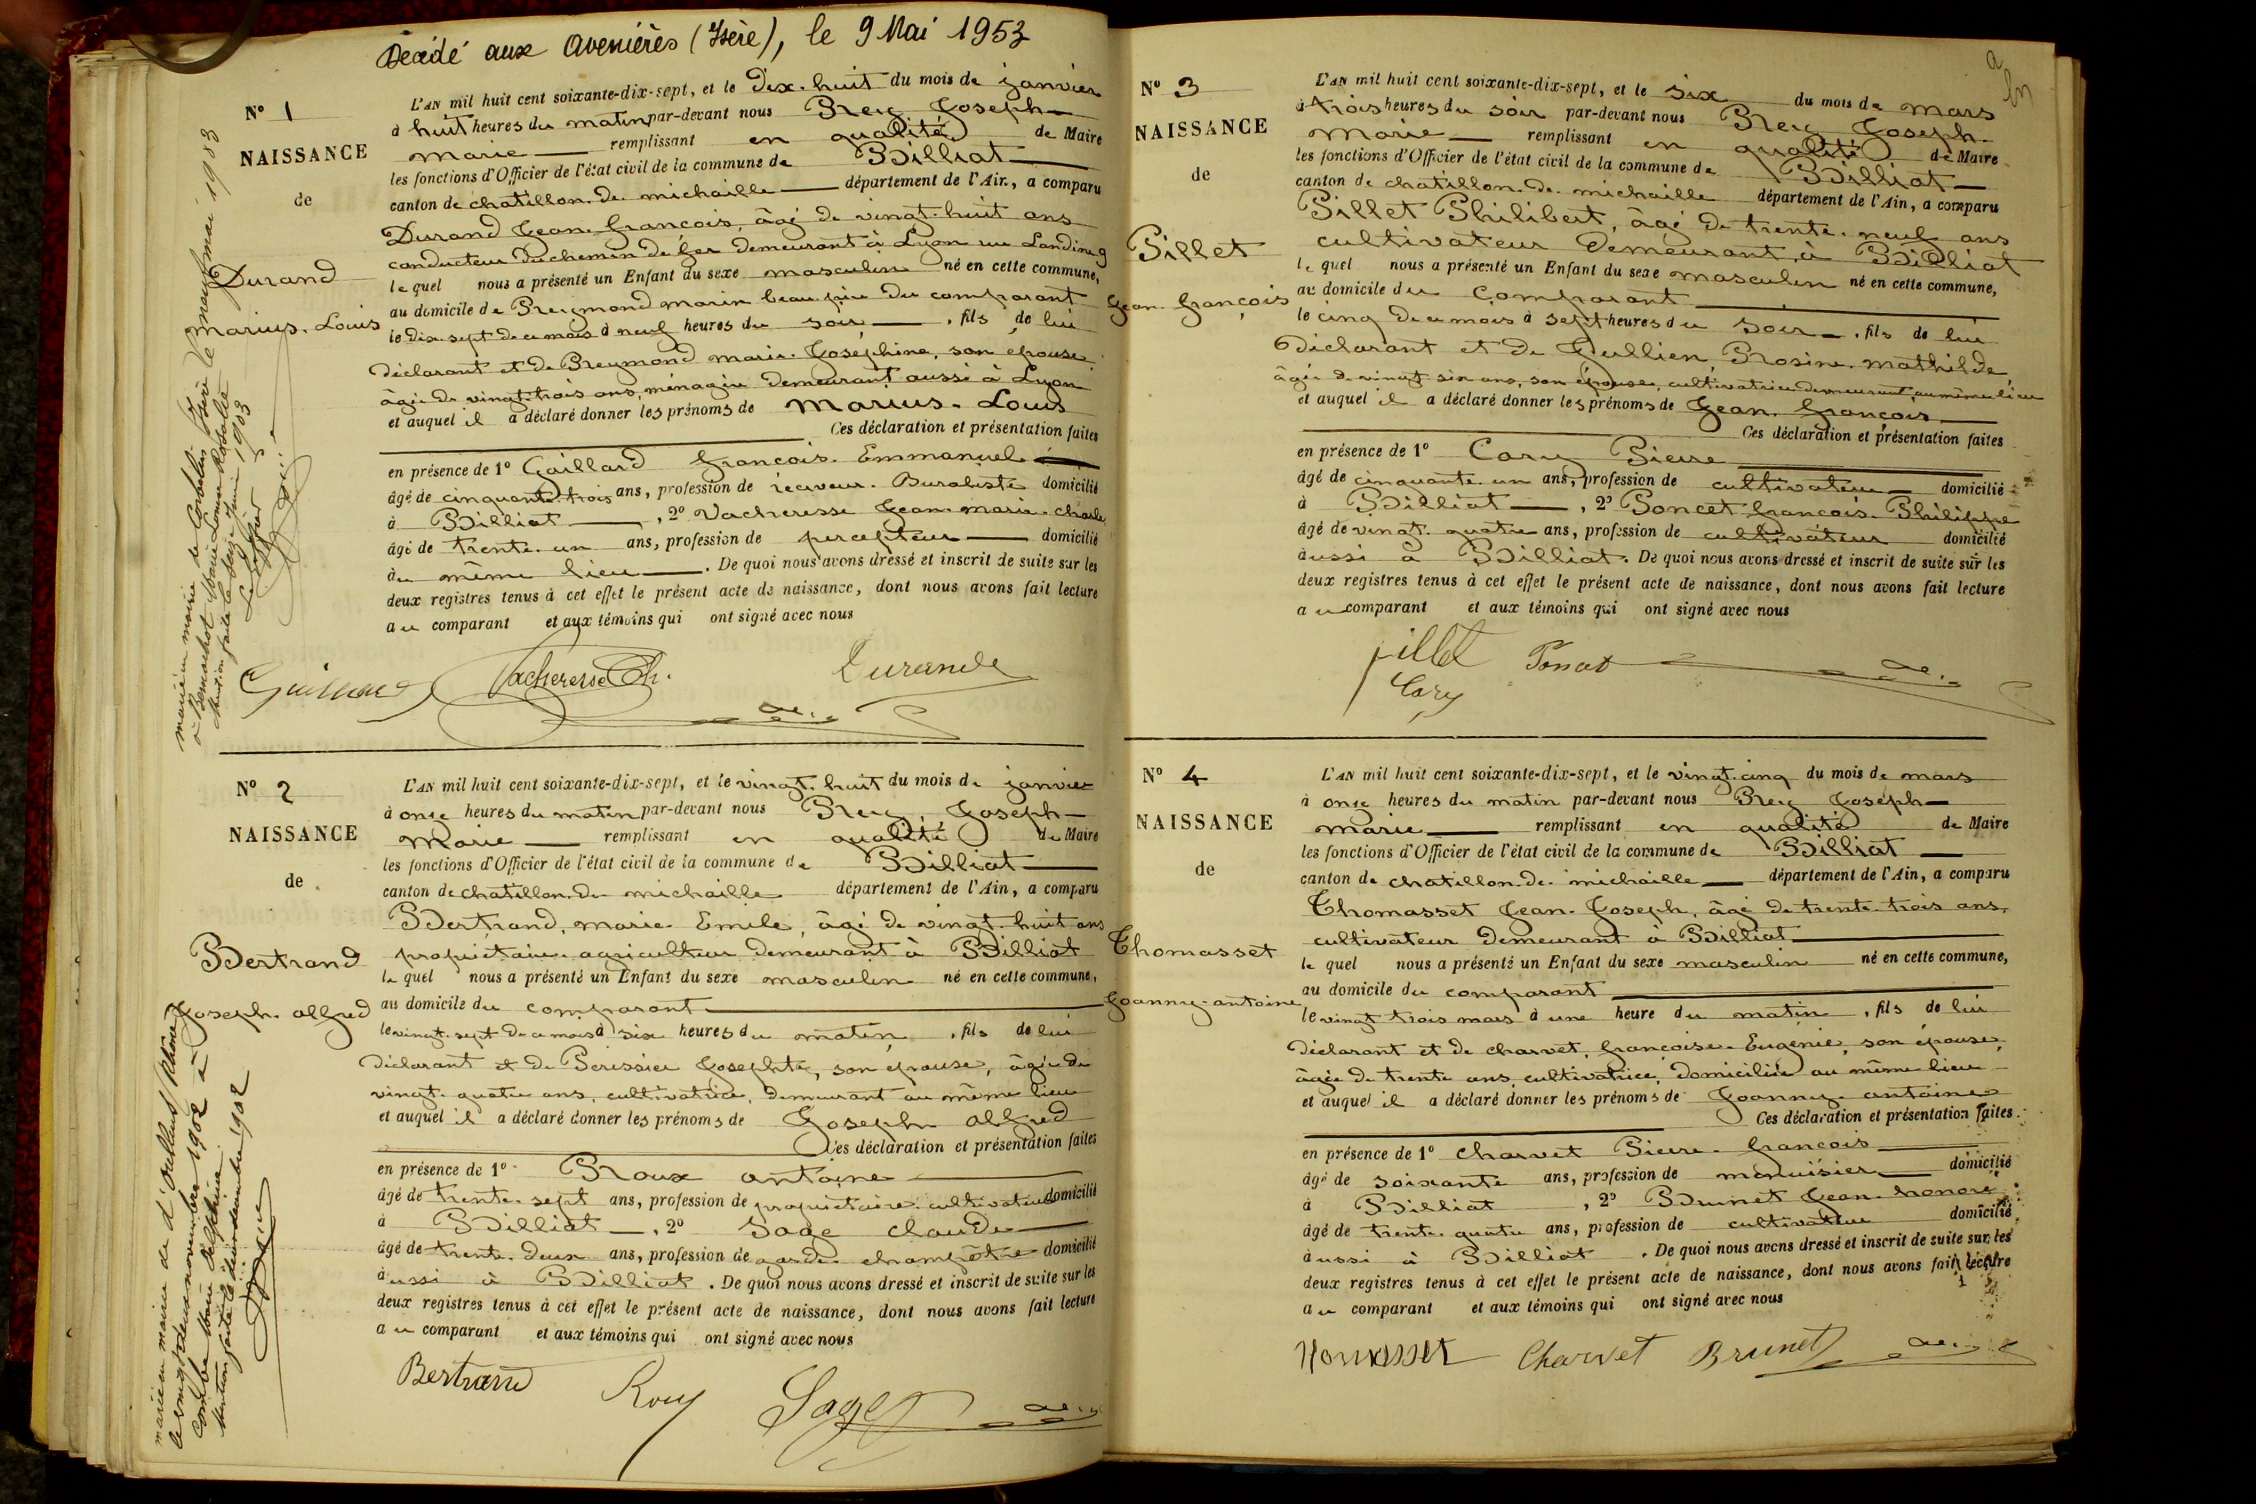 Décédé aux Avenières (Isère), le 9 Mai 1953
N° 1
NAISSANCE
de
Durand
Marius-Louis
L'AN mil huit cent soixante-dix-sept, et le dix-huit du mois de janvier
à huit heures du matin par-devant nous Brey Joseph-
Marie remplissant en qualité de Maire
les fonctions d'Officier de l'état civil de la commune de Billiat
canton de Chatillon-de-Michaille département de l'Ain, a comparu
Durand Jean-François, âgé de vingt-huit ans
conducteur du chemin de fer demeurant à Lyon
le quel nous a présenté un Enfant du sexe masculin né en cette commune,
au domicile de Breymond Marin beau-père du comparant
le dix-sept de ce mois à neuf heures du soir, fils de lui
déclarant et de Breymond Marie-Joséphine, son épouse
âgée de vingt-trois ans, ménagère demeurant aussi à Lyon
et auquel il a déclaré donner les prénoms de Marius-Louis
Ces déclaration et présentation faites
en présence de 1° Gaillard François-Emmanuel
âgé de cinquante-trois ans, profession de receveur-Buraliste domicilié
à Billiat, 2° Vacheresse Jean-Marie-Charles
âgé de trente-un ans, profession de percepteur domicilié
au même lieu. De quoi nous avons dressé et inscrit de suite sur les
deux registres tenus à cet effet le présent acte de naissance, dont nous avons fait lecture
au comparant et aux témoins qui ont signé avec nous
Vacheresse Ch. Durand
marié en mairie de Corbelin Isère le neuf mai 1903
à Bemachot Marie Louise Rosalie
Mention faite le seize juin 1903
N° 2
NAISSANCE
de
Bertrand
Joseph-Alfred
L'AN mil huit cent soixante-dix-sept, et le vingt-huit du mois de janvier
à onze heures du matin par-devant nous Brey Joseph-
Marie remplissant en qualité de Maire
les fonctions d'Officier de l'état civil de la commune de Billiat
canton de Chatillon-de-Michaille département de l'Ain, a comparu
Bertrand, Marie-Emile, âgé de vingt-huit ans
propriétaire-agriculteur demeurant à Billiat
le quel nous a présenté un Enfant du sexe masculin né en cette commune,
au domicile du comparant
le vingt-sept de ce mois à six heures du matin, fils de lui
déclarant et de Périssier Josephte, son épouse, âgée de
vingt-quatre ans, cultivatrice, demeurant au même lieu
et auquel il a déclaré donner les prénoms de Joseph Alfred
Ces déclaration et présentation faites
en présence de 1° Roux Antoine
âgé de trente-sept ans, profession de propriétaire-cultivateur domicilié
à Billiat, 2° Sage Claude
âgé de trente-deux ans, profession de garde-champêtre domicilié
aussi à Billiat. De quoi nous avons dressé et inscrit de suite sur les
deux registres tenus à cet effet le présent acte de naissance, dont nous avons fait lecture
au comparant et aux témoins qui ont signé avec nous
Bertrand Roux Sage
marié en mairie de d'Oullins Rhône
le vingt-deux novembre 1902 à
Combe Marie Delphine
Mention faite le deux décembre 1902
N° 3
NAISSANCE
de
Pillet
Jean-François
L'AN mil huit cent soixante-dix-sept, et le six du mois de mars
à trois heures du soir par-devant nous Brey Joseph-
Marie remplissant en qualité de Maire
les fonctions d'Officier de l'état civil de la commune de Billiat
canton de Chatillon-de-Michaille département de l'Ain, a comparu
Pillet Philibert, âgé de trente-neuf ans
cultivateur demeurant à Billiat
le quel nous a présenté un Enfant du sexe masculin né en cette commune,
au domicile du comparant
le cinq de ce mois à sept heures du soir, fils de lui
déclarant et de Jullien Rosine-Mathilde
âgée de vingt-six ans, son épouse, cultivatrice demeurant au même lieu
et auquel il a déclaré donner les prénoms de Jean-François
Ces déclaration et présentation faites
en présence de 1° Cary Pierre
âgé de cinquante-un ans, profession de cultivateur domicilié
à Billiat, 2° Poncet François-Philippe
âgé de vingt-quatre ans, profession de cultivateur domicilié
aussi à Billiat. De quoi nous avons dressé et inscrit de suite sur les
deux registres tenus à cet effet le présent acte de naissance, dont nous avons fait lecture
au comparant et aux témoins qui ont signé avec nous
pillet Ponsat
Cary
N° 4
NAISSANCE
de
Thomasset
Joanny-Antoine
L'AN mil huit cent soixante-dix-sept, et le vingt-cinq du mois de mars
à onze heures du matin par-devant nous Brey Joseph
Marie remplissant en qualité de Maire
les fonctions d'Officier de l'état civil de la commune de Billiat
canton de Chatillon-de-Michaille département de l'Ain, a comparu
Thomasset Jean-Joseph, âgé de trente-trois ans,
cultivateur demeurant à Billiat
le quel nous a présenté un Enfant du sexe masculin né en cette commune,
au domicile du comparant
le vingt-trois mars à une heure du matin, fils de lui
déclarant et de Charvet, Françoise-Eugénie, son épouse,
âgée de trente ans, cultivatrice, domiciliée au même lieu
et auquel il a déclaré donner les prénoms de Joanny-Antoine
Ces déclaration et présentation faites
en présence de 1° Charvet Pierre-François
âgé de soixante ans, profession de menuisier domicilié
à Billiat, 2° Brunet Jean-Honoré
âgé de trente-quatre ans, profession de cultivateur domicilié
aussi à Billiat. De quoi nous avons dressé et inscrit de suite sur les
deux registres tenus à cet effet le présent acte de naissance, dont nous avons fait lecture
au comparant et aux témoins qui ont signé avec nous
Thomasset Charvet Brunet